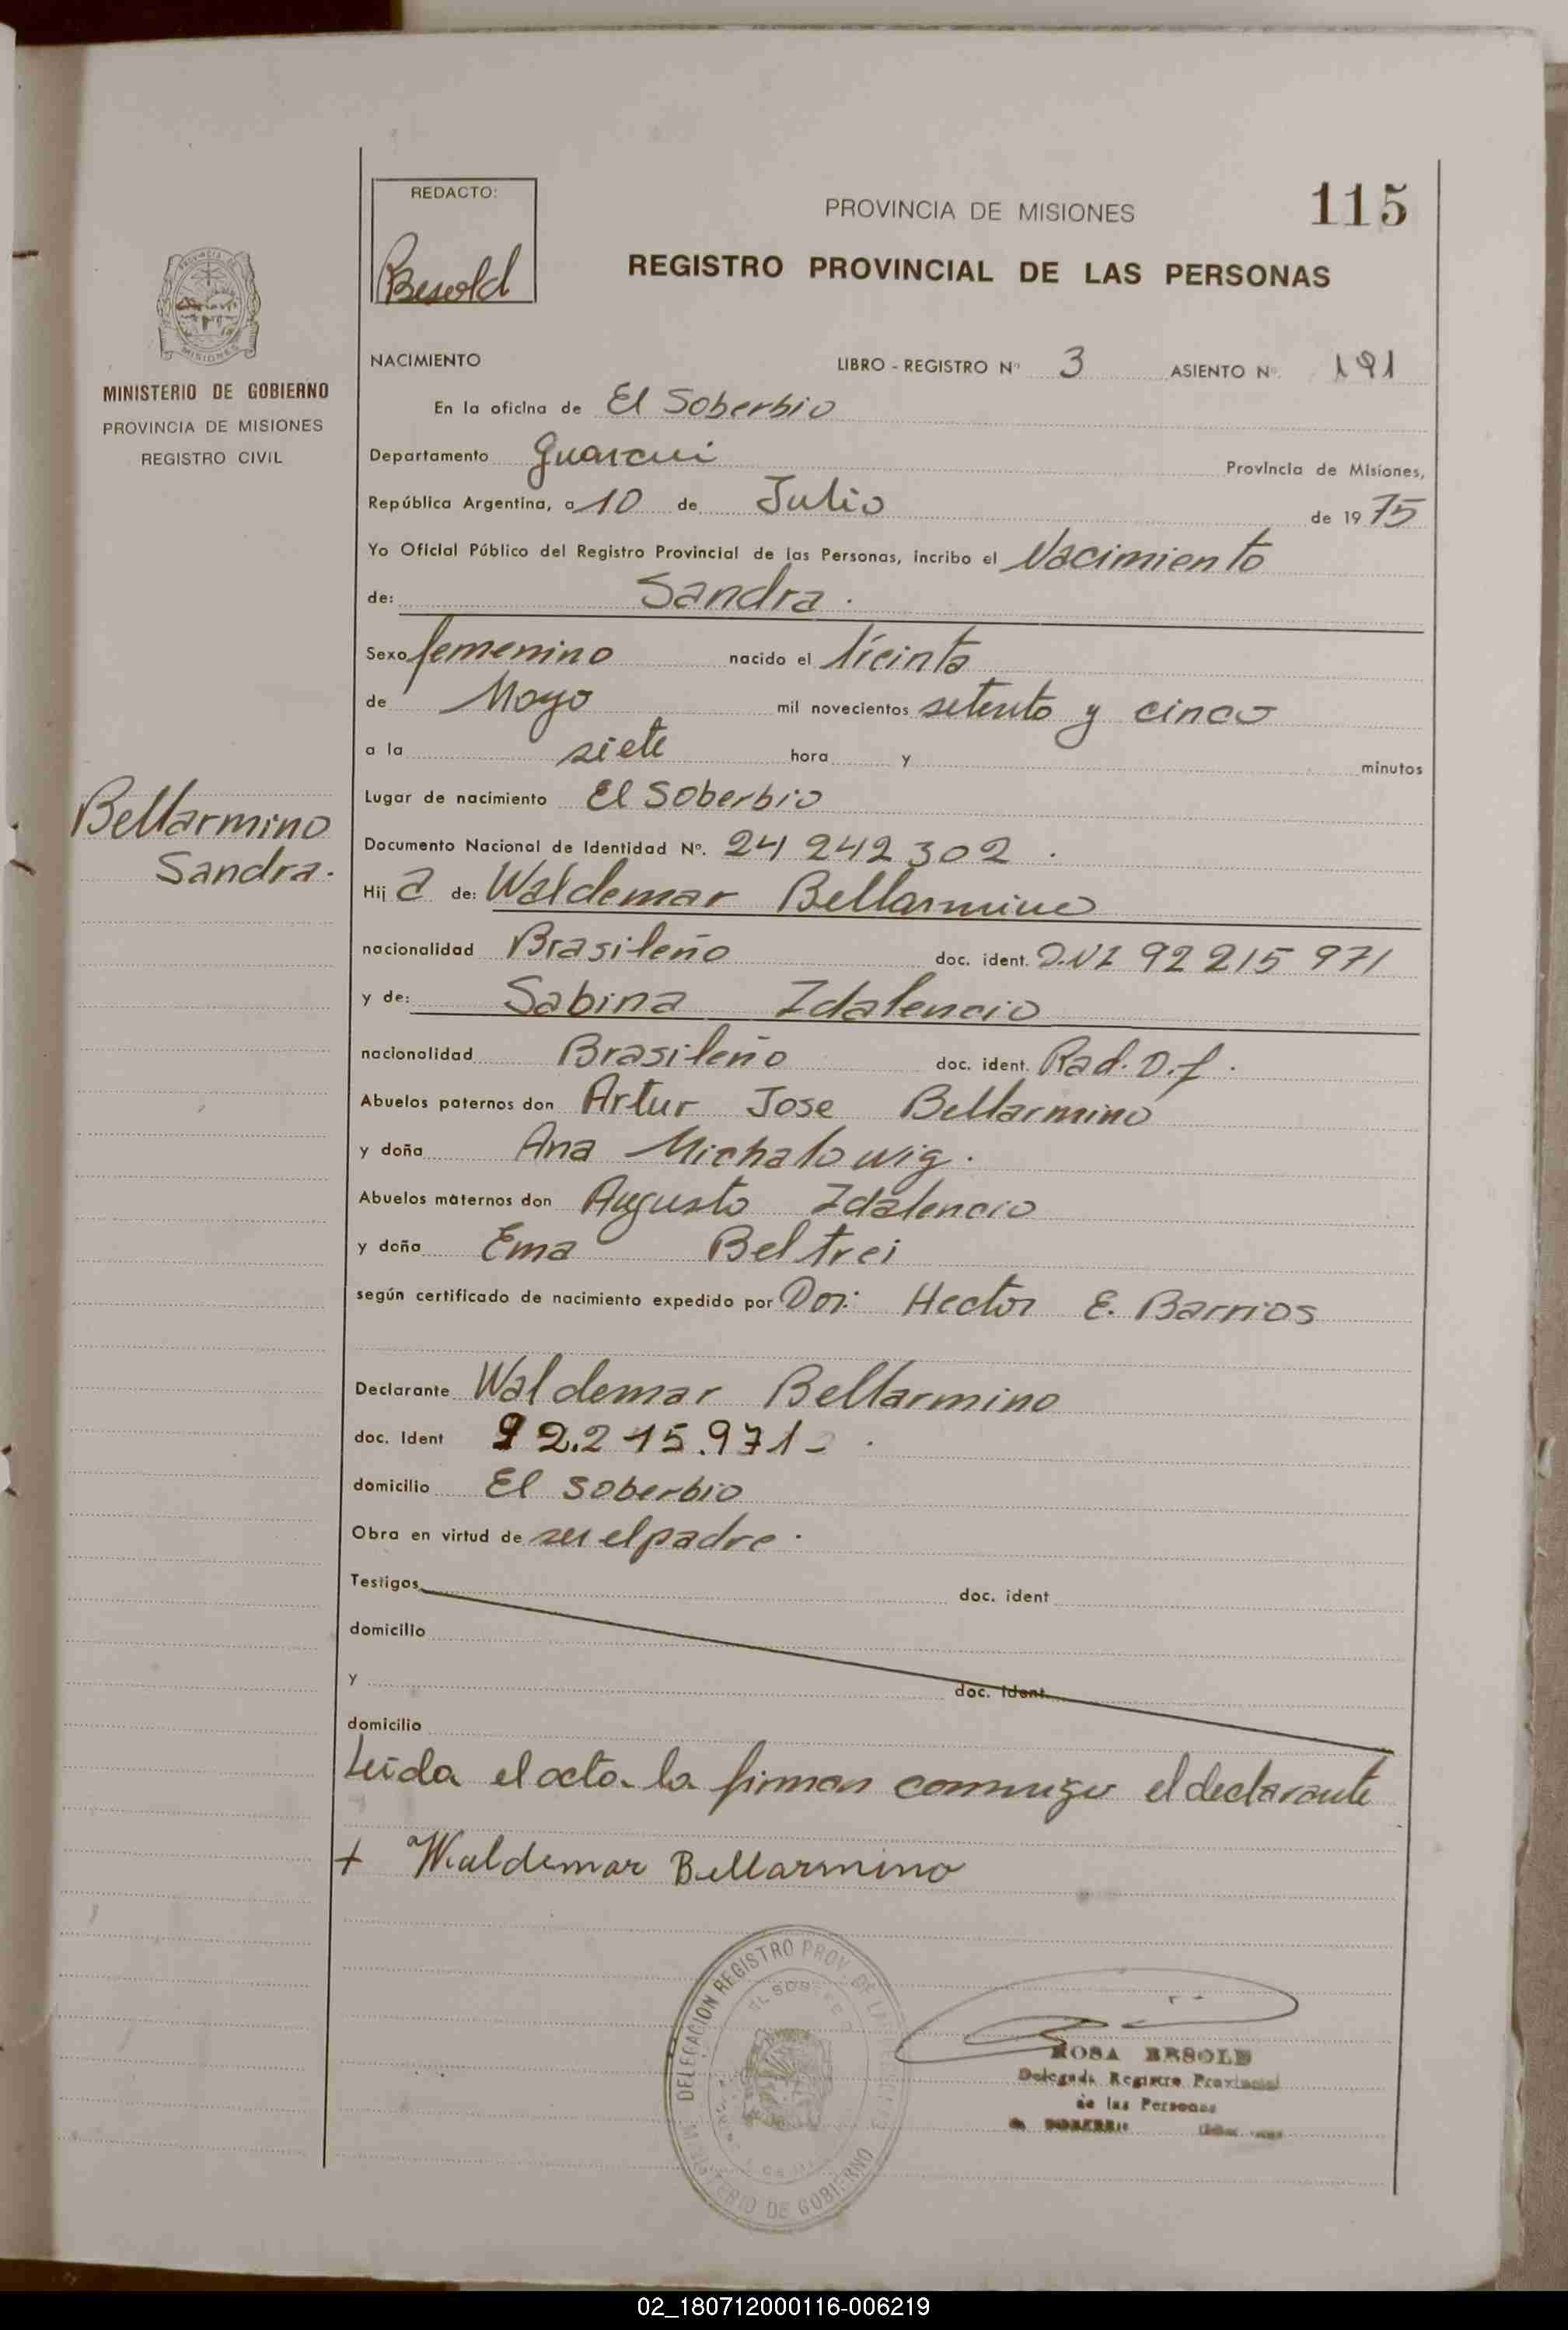 REDACTO:
Besold
PROVINCIA DE MISIONES
115
REGISTRO PROVINCIAL DE LAS PERSONAS
MISIONES
MINISTERIO DE GOBIERNO
PROVINCIA DE MISIONES
REGISTRO CIVIL
NACIMIENTO LIBRO - REGISTRO Nº 3 ASIENTO Nº. 191
En la oficina de El Soberbio
Departamento Guarani Provincia de Misiones,
República Argentina, a 10 de Julio de 1975
Yo Oficial Público del Registro Provincial de las Personas, incribo el Nacimiento
de: Sandra.
Sexo femenino nacido el treinta
de Mayo mil novecientos setenta y cinco
a la siete hora y minutos
Lugar de nacimiento El Soberbio
Bellarmino
Sandra.
Documento Nacional de Identidad Nº. 24 242 302.
Hij a de: Waldemar Bellarmino
nacionalidad Brasileño doc. ident. D.N.I 92 215 971
y de: Sabina Idalencio
nacionalidad Brasileño doc. ident. Rad. D.f.
Abuelos paternos don Artur Jose Bellarmino
y doña Ana Michalowig.
Abuelos maternos don Augusto Idalencio
y doña Ema Beltrei
según certificado de nacimiento expedido por Dor: Hector E. Barrios
Declarante Waldemar Bellarmino
doc. Ident 92.215.971-.
domicilio El Soberbio
Obra en virtud de ser el padre.
Testigos doc. ident
domicilio
y doc. ident.
domicilio
Leida el acta la firman conmigo el declarante
+ Waldemar Bellarmino
DELEGACION REGISTRO PROV. DE LAS
EL SOBERBIO
MINISTERIO DE GOBIERNO
ROSA BESOLD
Delegada Registro Provincial
de las Personas
02_180712000116-006219